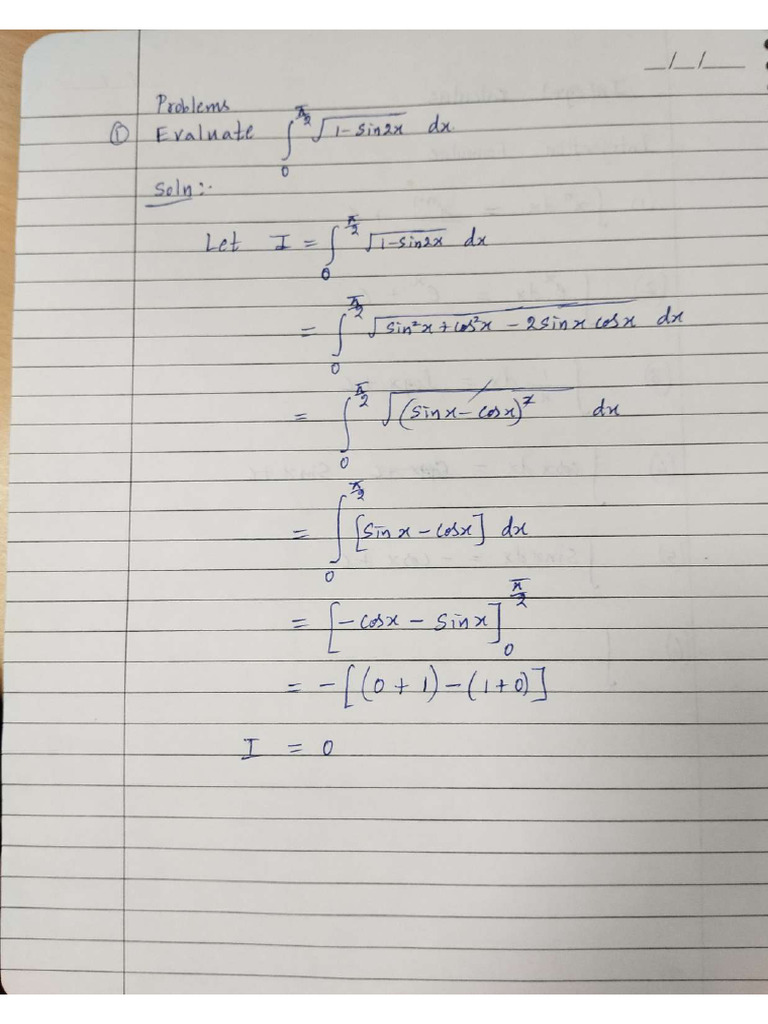 _/_/__
Problems
① Evaluate ∫₀^(π/2) √(1-sin2x) dx.
Soln:-
Let I = ∫₀^(π/2) √(1-sin2x) dx
= ∫₀^(π/2) √(sin²x + cos²x - 2sinx cosx) dx
= ∫₀^(π/2) √((sinx - cosx)²) dx
= ∫₀^(π/2) [sinx - cosx] dx
= [-cosx - sinx]₀^(π/2)
= -[(0 + 1) - (1 + 0)]
I = 0